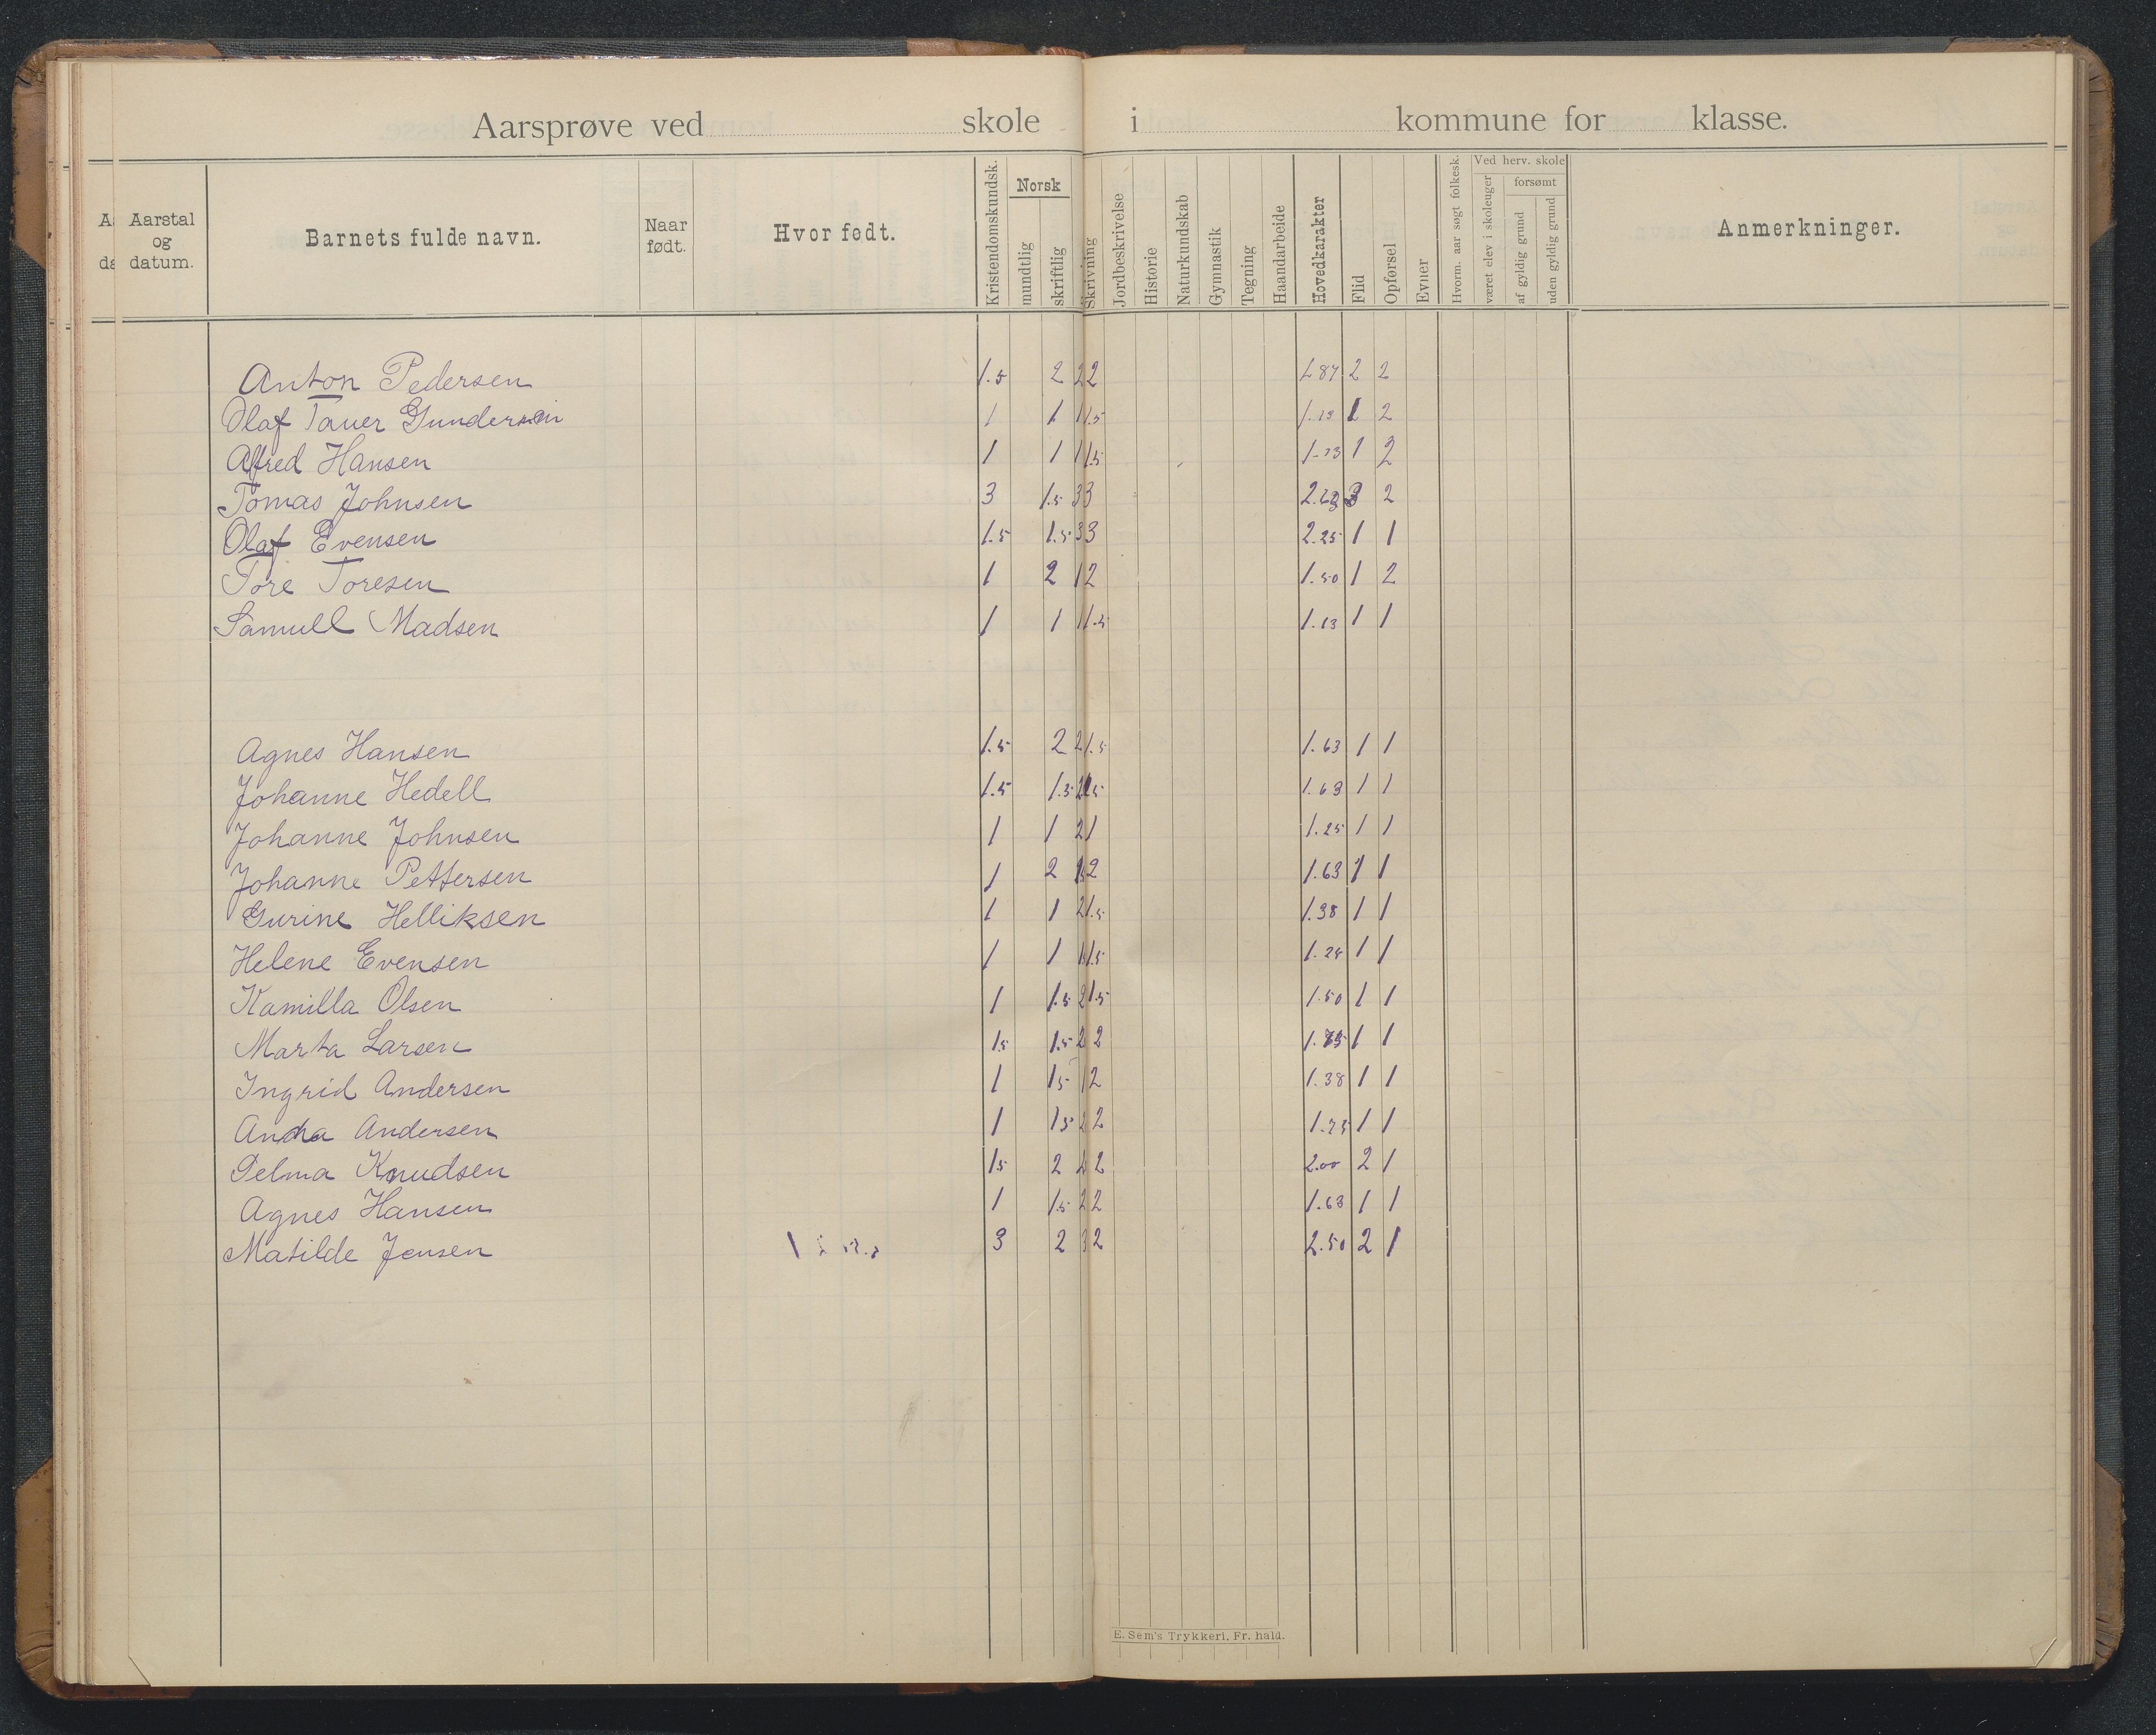 Aarsprøve ved skole i kommune for klasse.
Aarstal og datum. Barnets fulde navn. Naar født. Hvor født. Kristendomskundsk. Norsk mundtlig skriftlig Skrivning Jordbeskrivelse Historie Naturkundskab Gymnastik Tegning Haandarbeide Hovedkarakter Flid Opførsel Evner Hvorm. aar søgt folkesk. Ved herv. skole været elev i skoleuger forsømt af gyldig grund uden gyldig grund Anmerkninger.
Anton Pedersen 1.5 2 2 2 1.87 2 2
Olaf Tauer Gundersen 1 1 1 1.5 1.13 1 2
Alfred Hansen 1 1 1 1.5 1.13 1 2
Tomas Johnsen 3 1.5 3 3 3 2
Olaf Evensen 1.5 1.5 3 3 2.25 1 1
Tore Toresen 1 2 1 2 1.50 1 2
Samuell Madsen 1 1 1 1.5 1.13 1 1
Agnes Hansen 1.5 2 2 1.5 1.63 1 1
Johanne Hedell 1.5 1.5 2 1.5 1.63 1 1
Johanne Johnsen 1 1 2 1 1.25 1 1
Johanne Pettersen 1 2 2 1.63 1 1
Gurine Helliksen 1 1 2 1.5 1.38 1 1
Helene Evensen 1 1 1.5 1.25 1 1
Kamilla Olsen 1 1.5 2 1.5 1.50 1 1
Marta Larsen 1.5 1.5 2 2 1 1
Ingrid Andersen 1 1.5 1 2 1.38 1 1
Anna Andersen 1 1.5 2 2 1 1
Selma Knudsen 1.5 2 2 2.00 2 1
Agnes Hansen 1 1.5 2 2 1.63 1 1
Matilde Jensen 3 2 3 2 2.50 2 1
E. Sem's Trykkeri, Fr. hald.